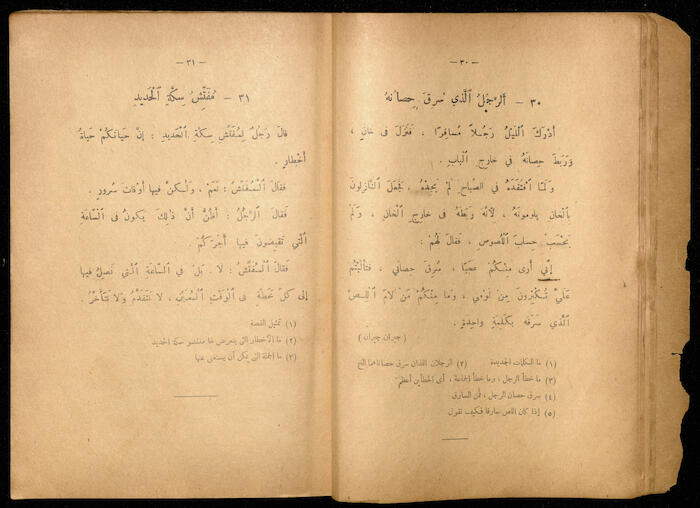 — ٣٠ —
٣٠ — اَلرَّجُلُ الَّذي سُرِقَ حِصانُهُ
أَدْرَكَ اَللَّيْلُ رَجُلًا مُسافِرًا ، فَنَزَلَ فى خانٍ ،
وَرَبَطَ حِصانَهُ فى خارِجِ البابِ .
وَلَمَّا افْتَقَدَهُ فى الصَّباحِ لَمْ يَجِدْهُ ، فَجَعَلَ النَّازِلونَ
بِالْخانِ يَلومونَهُ ، لِأَنَّهُ رَبَطَهُ فى خارِجِ الْخانِ ، وَلَمْ
يَحْسَبْ حِسابَ اللُّصوصِ ، فَقالَ لَهُمْ :
إِنِّي أَرى مِنْكُمْ عَجَبًا ، سُرِقَ حِصانى ، فَتَأَلَّبْتُمْ
عَلَىَّ تُكْثِرونَ مِنْ لَوْمى ، وَما مِنْكُمْ مَنْ لامَ اللِّصَّ
الَّذى سَرَقَهُ بِكَلِمَةٍ واحِدَةٍ .
( جبران جبران )
(١) ما الكلمات الجديدة (٢) الرجلان اللذان سرق حصاناهما الخ
(٣) ما خطأ الرجل ، وما خطأ الجماعة ، أى الخطأين أعظم
(٤) سرق حصان الرجل ، فمن السارق
(٥) إذا كان اللص جارفا فكيف تقول
— ٣١ —
٣١ — مُفَتِّشُ سِكَّةِ الْحَديدِ
قالَ رَجُلٌ لِمُفَتِّشِ سِكَّةِ الْحَديدِ : إِنَّ حَياتَكُمْ حَياةُ
أَخْطارٍ .
فَقالَ اَلْمُفَتِّشُ : نَعَمْ ، وَلٰكِنْ فيها أَوْقاتَ سُرورٍ .
فَقالَ الرَّجُلُ : أَظُنُّ أَنَّ ذٰلِكَ يَكونُ فى السَّاعَةِ
الَّتى تَقْبِضونَ فيها أُجْرَتَكُمْ .
فَقالَ اَلْمُفَتِّشُ : لا . بَلْ فى السَّاعَةِ الَّتى نَصِلُ فيها
إِلى كُلِّ مَحَطَّةٍ فى الْوَقْتِ الْمُعَيَّنِ ، لا نَتَقَدَّمُ وَلا نَتَأَخَّرُ .
(١) تمثيل القصة
(٢) ما الأخطار التى يتعرض لها مفتشو سكة الحديد
(٣) ما الجملة التى يمكن أن يستغنى عنها